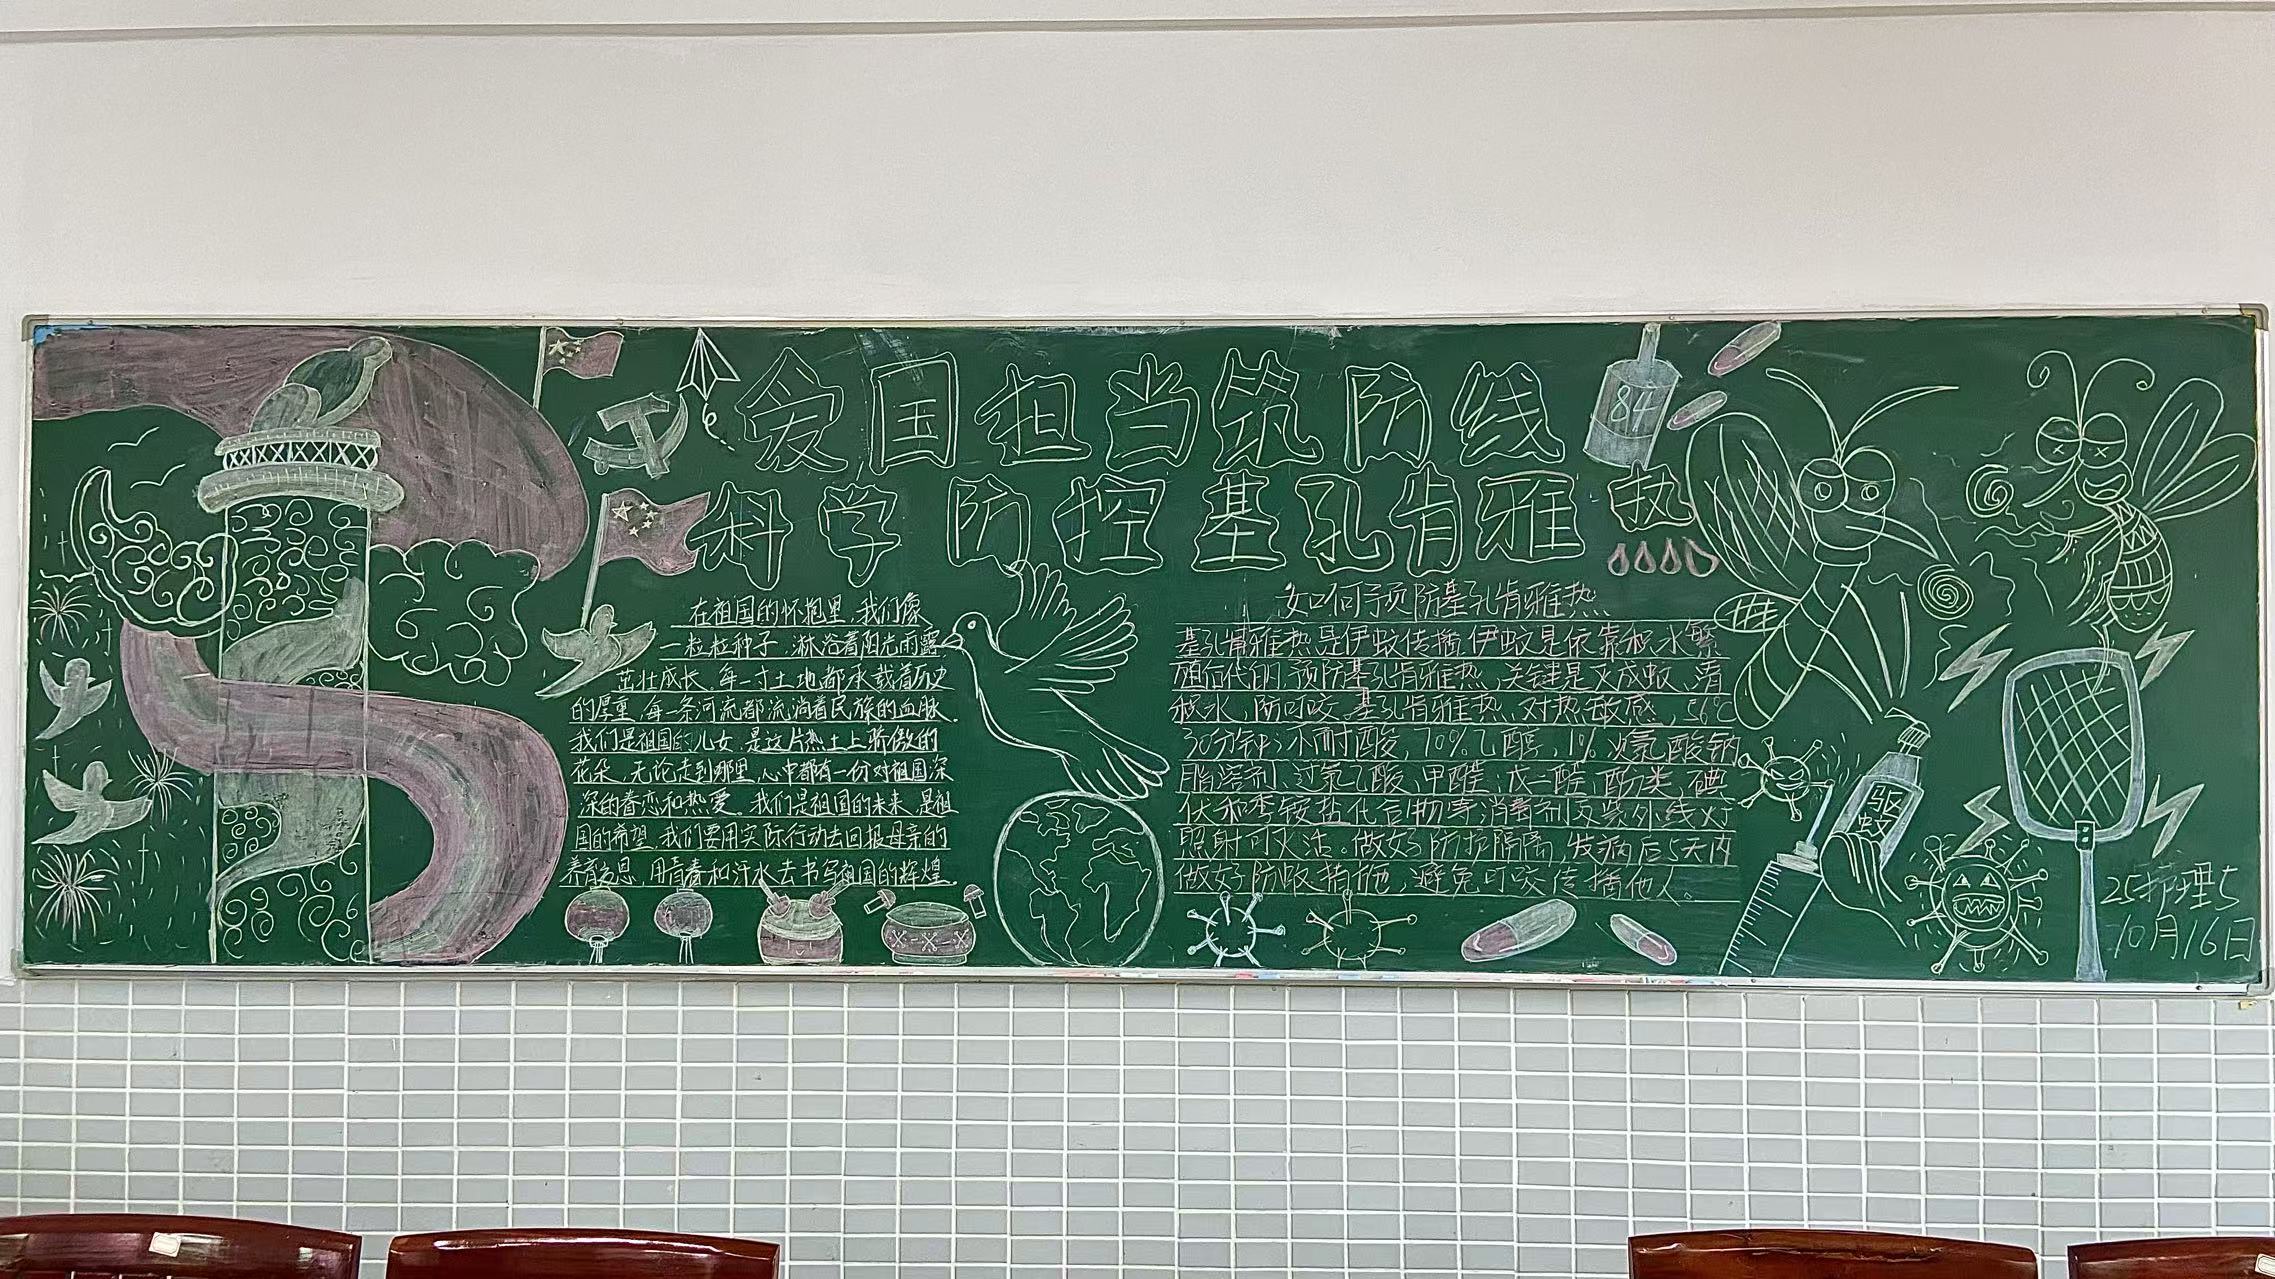 爱国担当筑防线
科学防控基孔肯雅热
在祖国的怀抱里,我们像
一粒粒种子,淋浴着阳光雨露
茁壮成长。每一寸土地都承载着历史
的厚重,每一条河流都流淌着民族的血脉。
我们是祖国的儿女,是这片热土上骄傲的
花朵,无论走到哪里,心中都有一份对祖国深
深的眷恋和热爱。我们是祖国的未来,是祖
国的希望,我们要用实际行动去回报母亲的
养育之恩,用青春和汗水去书写祖国的辉煌。
如何预防基孔肯雅热
基孔肯雅热是伊蚊传播,伊蚊是依靠积水繁
殖后代的,预防基孔肯雅热,关键是灭成蚊、清
积水、防叮咬。基孔肯雅热、对热敏感,56℃
30分钟;不耐酸,70%乙醇,1%次氯酸钠
脂溶剂、过氧乙酸、甲醛、戊二醛、酚类、碘
伏和季铵盐化合物等消毒剂及紫外线灯
照射可灭活。做好防护隔离,发病后5天内
做好防蚊措施,避免叮咬传播他人。
84
驱
蚊
25护理5
10月16日